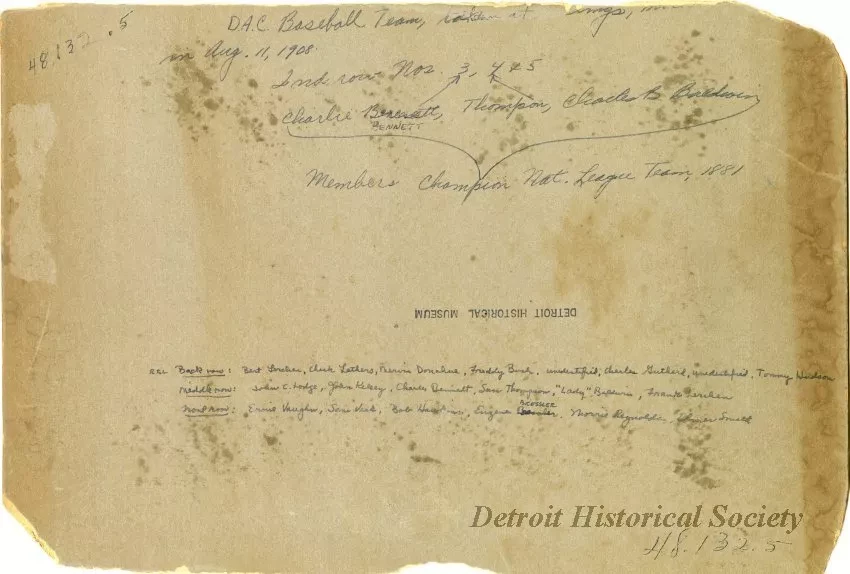 48.132.5
D.A.C. Baseball Team, taken at
in Aug. 11, 1908
2nd row Nos. 3, 4 & 5
Charlie Bennett, Thompson, Charles B. Baldwin
BENNETT
Members Champion Nat. League Team, 1881
DETROIT HISTORICAL MUSEUM
Back row: Bert Lerchen, Chick Lathers, Donahue, Freddy Bush, unidentified, Charles Guthard, unidentified, Tommy Hudson
Middle row: John C. Lodge, John Kelsey, Charles Bennett, Sam Thompson, "Lady" Baldwin, Frank Lerchen
Front row: Ernie Vaughn, Bob, Eugene, Morris Reynolds, Elmer Smith
Detroit Historical Society
48.132.5